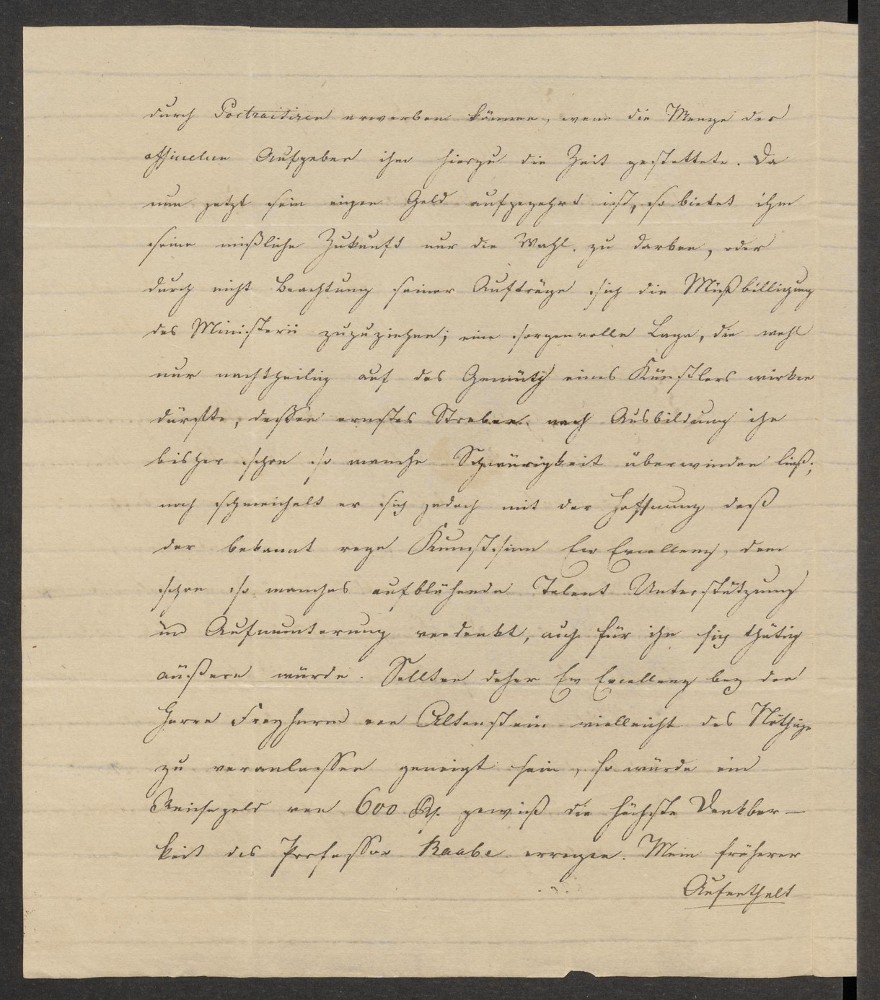 durch Portraitiren erwerben können, wenn die Menge der
officielen Aufgaben ihm hierzu die Zeit gestattete. Da
nun jetzt sein eigen Geld aufgezehrt ist, so bietet ihm
seine mißliche Zukunft nur die Wahl, zu darben, oder
durch nicht Beachtung seiner Aufträge sich die Mißbilligung
des Ministerii zuzuziehen; eine sorgenvolle Lage, die wohl
nur nachtheilig auf das Gemüth eines Künstlers wirken
dürfte, dessen ernstes Streben nach Ausbildung ihn
bisher schon so manche Schwürigkeit überwinden ließ;
noch schmeichelt er sich jedoch mit der Hoffnung daß
der bekannt rege Kunstsinn Ew Excellenz, dem
schon so manches aufblühende Talent Unterstützung
und Aufmunterung verdankt, auch für ihn sich thätig
äußern würde. Sollten daher Ew Excellenz bey dem
Herrn Freyherrn von Altenstein vielleicht das Nöthige
zu veranlassen geneigt sein, so würde ein
Reisegeld von 600 Rt. gewiß die höchste Dankbar-
keit des Professor Raabe erregen. Mein früherer
Aufenthalt